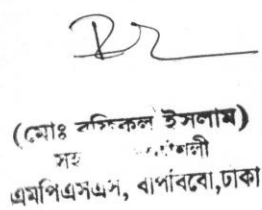 (মোঃ রফিকুল ইসলাম)
সহ
এমপিএসএস, বাপবিবো, ঢাকা